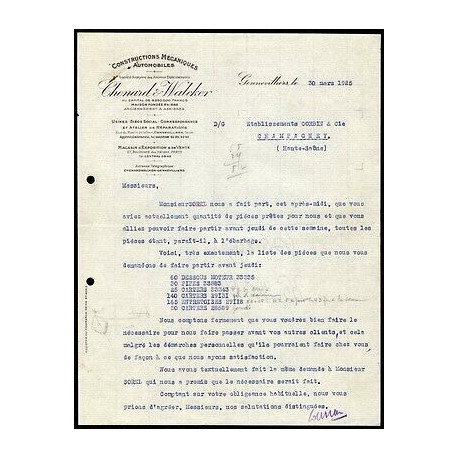 CONSTRUCTIONS MÉCANIQUES
AUTOMOBILES
Société Anonyme des Anciens Établissements
Chenard & Walcker
AU CAPITAL DE FRANCS
MAISON FONDÉE EN
ANCIENNEMENT À ASNIÈRES
Gennevilliers, le 30 mars 1925
USINES, SIÈGE SOCIAL, CORRESPONDANCE
ET ATELIER DE RÉPARATIONS
D/G Etablissements CORBIN & Cie
CHAMPAGNEY.
(Haute-Saône)
MAGASIN D'EXPOSITION & DE VENTE
Adresse Télégraphique
CHENARWALCKER-GENNEVILLIERS
Messieurs,
Monsieur BOREL nous a fait part, cet après-midi, que vous
aviez actuellement quantité de pièces prêtes pour nous et que vous
alliez pouvoir faire partir avant jeudi de cette semaine, toutes les
pièces étant, paraît-il, à l'ébarbage.
Voici, très exactement, la liste des pièces que nous vous
demandons de faire partir avant jeudi:
60 DESSOUS MOTEUR 33335
30 PIPES 33883
25 CARTERS 33343
140 CARTERS 29131
165 ENTRETOISES 29118
30 CARTERS 28869
Nous comptons fermement que vous voudrez bien faire le
nécessaire pour nous faire passer avant vos autres clients, et cela
malgré les démarches personnelles qu'ils pourraient faire chez vous
de façon à ce que nous ayons satisfaction.
Nous avons textuellement fait la même demande à Monsieur
BOREL qui nous a promis que le nécessaire serait fait.
Comptant sur votre obligeance habituelle, nous vous
prions d'agréer, Messieurs, nos salutations distinguées.